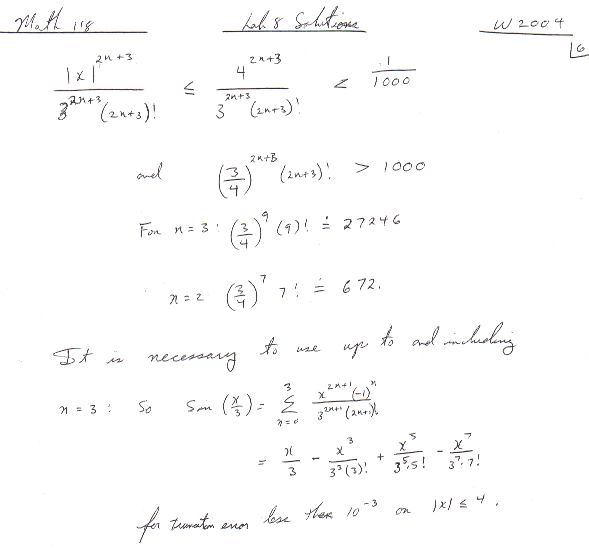 Math 118 Lab 8 Solutions W 2004
6
|x|^{2n+3} / (3^{2n+3} (2n+3)!) ≤ 4^{2n+3} / (3^{2n+3} (2n+3)!) < 1/1000
and (3/4)^{2n+3} (2n+3)! > 1000
For n = 3 : (3/4)^9 (9)! ≐ 27246
n = 2 (3/4)^7 7! ≐ 672.
It is necessary to use up to and including
n = 3 : So Sin (x/3) = Σ_{n=0}^{3} x^{2n+1} (-1)^n / (3^{2n+1} (2n+1)!)
= x/3 - x^3/(3^3 (3)!) + x^5/(3^5 · 5!) - x^7/(3^7 · 7!)
for truncation error less than 10^{-3} on |x| ≤ 4 .